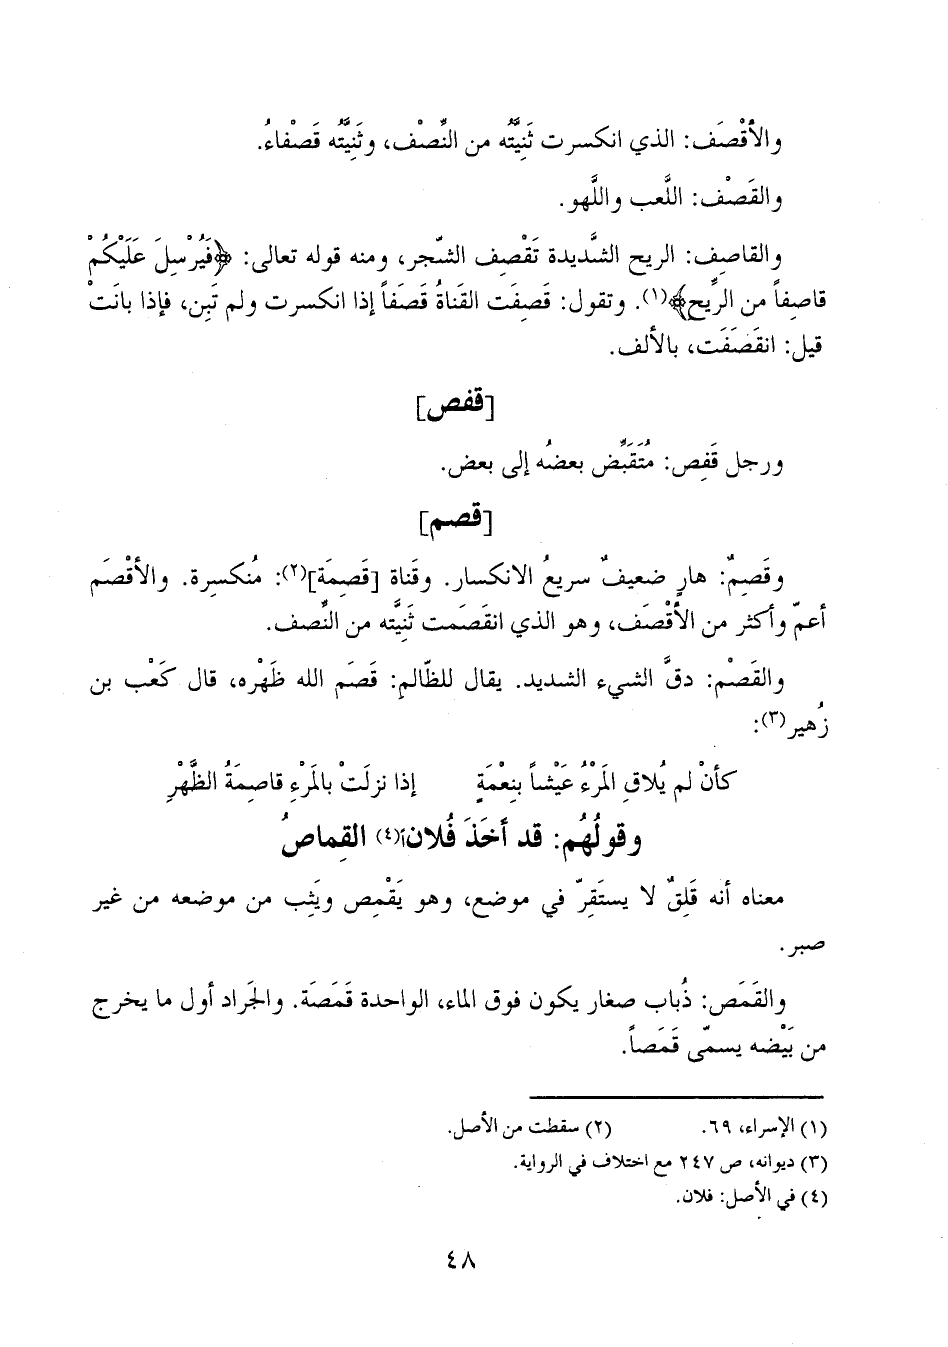 والأقْصَف: الذي انكسرت ثَنِيَّتُه من النِّصْف، وثَنِيَّتُه قَصْفاءُ.
والقَصْف: اللَّعب واللَّهو.
والقاصِف: الريح الشَّديدة تَقْصِف الشّجر، ومنه قوله تعالى: ﴿فَيُرْسِلَ عَلَيْكُمْ
قاصِفاً من الرِّيح﴾(١). وتقول: قَصِفَت القَناةُ قَصَفاً إذا انكسرت ولم تَبِن، فإذا بانَتْ
قيل: انقَصَفَت، بالألف.
[قفص]
ورجل قَفِص: مُتَقَبِّض بعضُه إلى بعض.
[قصم]
وقَصِمٌ: هارٍ ضعيفٌ سريعُ الانكسار. وقَناة [قَصِمَة](٢): مُنكسرة. والأقْصَم
أعمّ وأكثر من الأقْصَف، وهو الذي انقَصَمت ثَنِيَّته من النِّصف.
والقَصْم: دقَّ الشيء الشديد. يقال للظّالم: قَصَم الله ظَهْره، قال كَعْب بن
زُهير(٣):
كأنْ لم يُلاقِ المَرْءُ عَيْشاً بنِعْمَةٍ إذا نزلَتْ بالمَرْءِ قاصِمَةُ الظَّهْرِ
وقولُهُم: قد أخَذَ فُلاناً(٤) القِماصُ
معناه أنه قَلِقٌ لا يستَقِرّ في موضع، وهو يَقْمِص ويَثِب من موضعه من غير
صبر.
والقَمَص: ذُباب صغار يكون فوق الماء، الواحدة قَمَصَة. والجَراد أول ما يخرج
من بَيْضه يسمّى قَمَصاً.
(١) الإسراء، ٦٩. (٢) سقطت من الأصل.
(٣) ديوانه، ص ٢٤٧ مع اختلاف في الرواية.
(٤) في الأصل: فلان.
٤٨